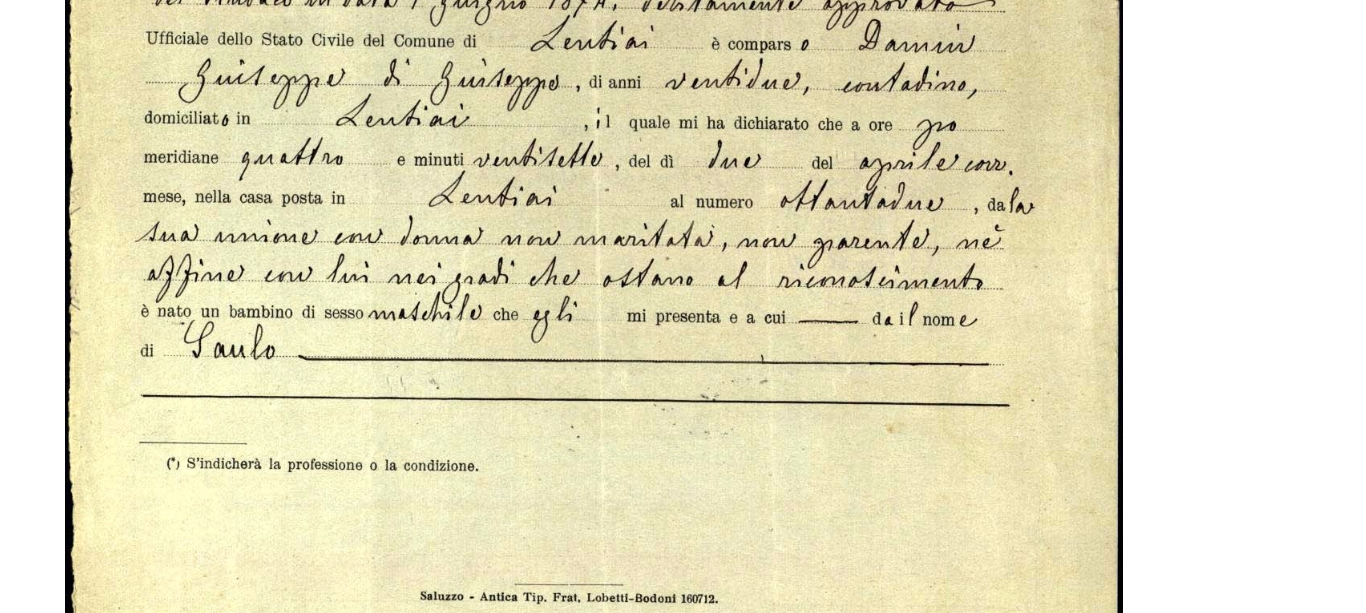 del Sindaco in data 1 giugno 1874. debitamente approvato
Ufficiale dello Stato Civile del Comune di Lentiai è comparso Damin
Guiseppe di Guiseppe, di anni ventidue, contadino,
domiciliato in Lentiai, il quale mi ha dichiarato che a ore po
meridiane quattro e minuti ventisette, del dì due del aprile corr.
mese, nella casa posta in Lentiai al numero ottantadue, dala
sua unione con donna non maritata, non parente, nè
affine con lui nei gradi che ostano al riconoscimento
è nato un bambino di sesso maschile che egli mi presenta e a cui —— da il nome
di Saulo
(*) S'indicherà la professione o la condizione.
Saluzzo - Antica Tip. Frat. Lobetti-Bodoni 160712.